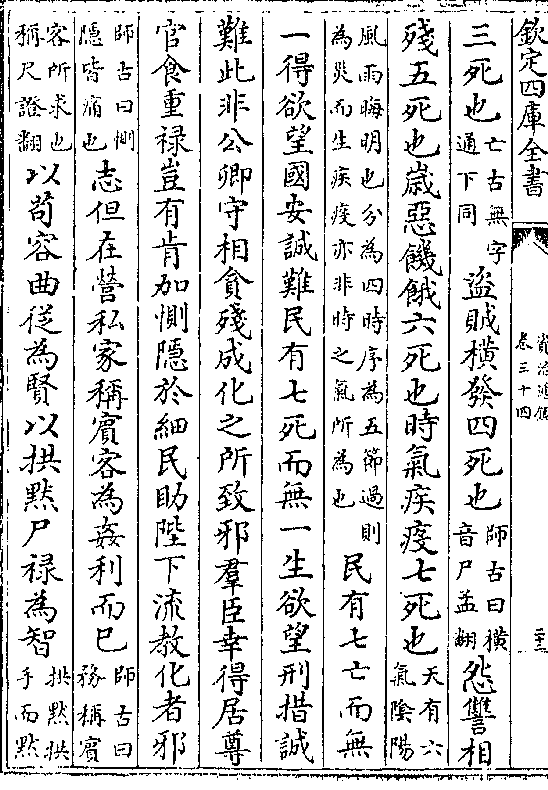 欽定四庫全書
資治通鑑
卷三十四
三死也亡古無字通下同盜賊橫發四死也師古曰橫音尸孟翻怨讐相
殘五死也歳惡饑餓六死也時氣疾疫七死也天有六氣陰陽
風雨晦明也分為四時序為五節過則為災而生疾疫亦非時之氣所為也民有七亡而無
一得欲望國安誠難民有七死而無一生欲望刑措誠
難此非公卿守相貪殘成化之所致邪羣臣幸得居尊
官食重禄豈有肯加惻隱於細民助陛下流教化者邪
師古曰惻隱皆痛也志但在營私家稱賔客為姦利而已師古曰務稱賔
容所求也稱尺證翻以苟容曲從為賢以拱黙尸禄為智拱黙拱手而黙